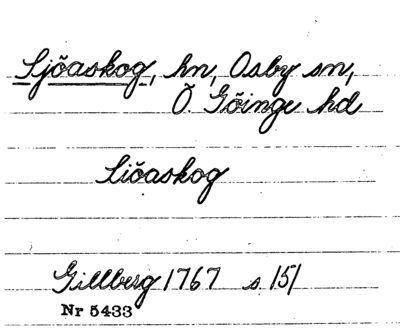 Sjöaskog, hn, Osby sn,
Ö. Göinge hd
Siöaskog
Gillberg 1767 s 151
Nr 5433